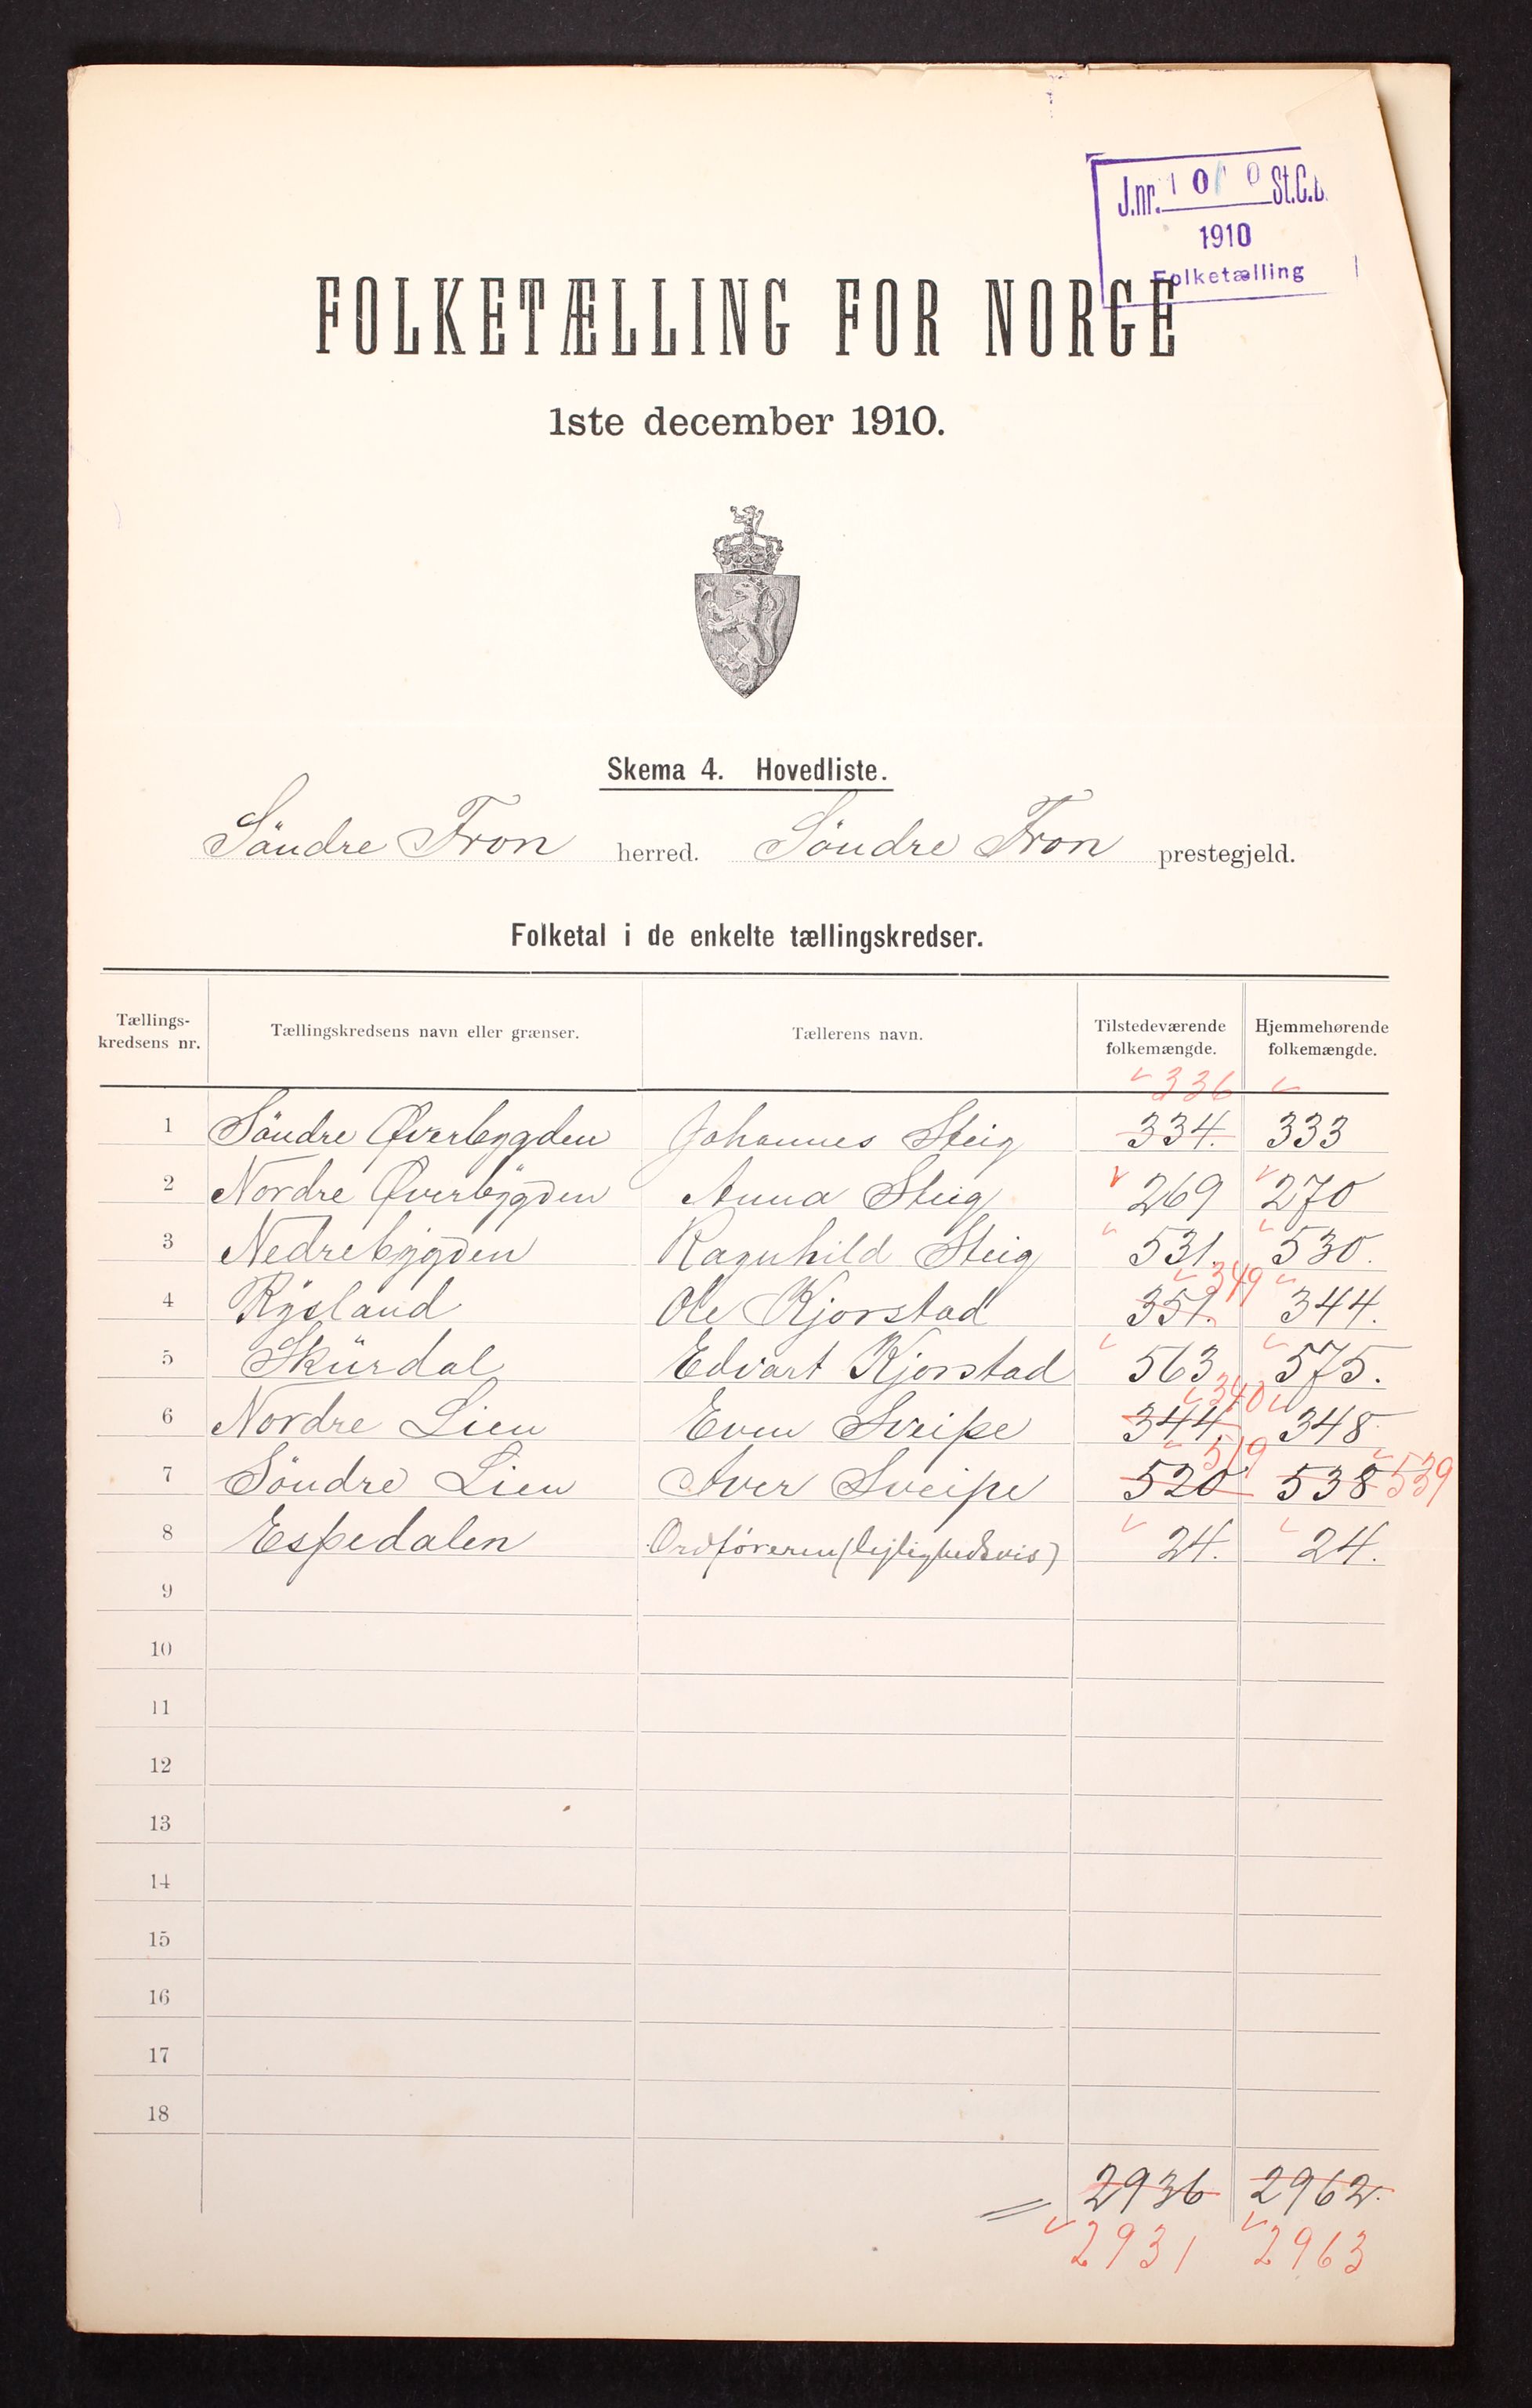 J.nr. 10 0 St.C.B.
1910
Folketælling
FOLKETÆLLING FOR NORGE
1ste december 1910.
Skema 4. Hovedliste.
Söndre Fron herred. Söndre Fron prestegjeld.
Folketal i de enkelte tællingskredser.
Tællings-kredsens nr. Tællingskredsens navn eller grænser. Tællerens navn. Tilstedeværende folkemængde. Hjemmehørende folkemængde.
336
1 Söndre Øverbygden Johannes Steig 334. 333
2 Nordre Øverbygden Anna Steig 269 270
3 Nedrebygden Ragnhild Steig 531. 530.
4 Rysland Ole Kjorstad 351. 349 344.
5 Skurdal Edvart Kjorstad 563 575.
6 Nordre Lien Even Sveipe 344 340 348
7 Söndre Lien Iver Sveipe 520 519 538 539
8 Espedalen Ordföreren (lejlighedsvis) 24. 24.
9
10
11
12
13
14
15
16
17
18
= 2936 2962.
2931 2963